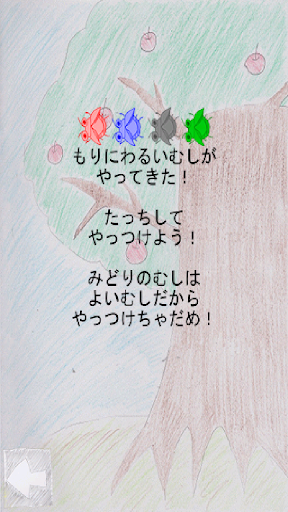 もりにわるいむしが
やってきた！
たっちして
やっつけよう！
みどりのむしは
よいむしだから
やっつけちゃだめ！